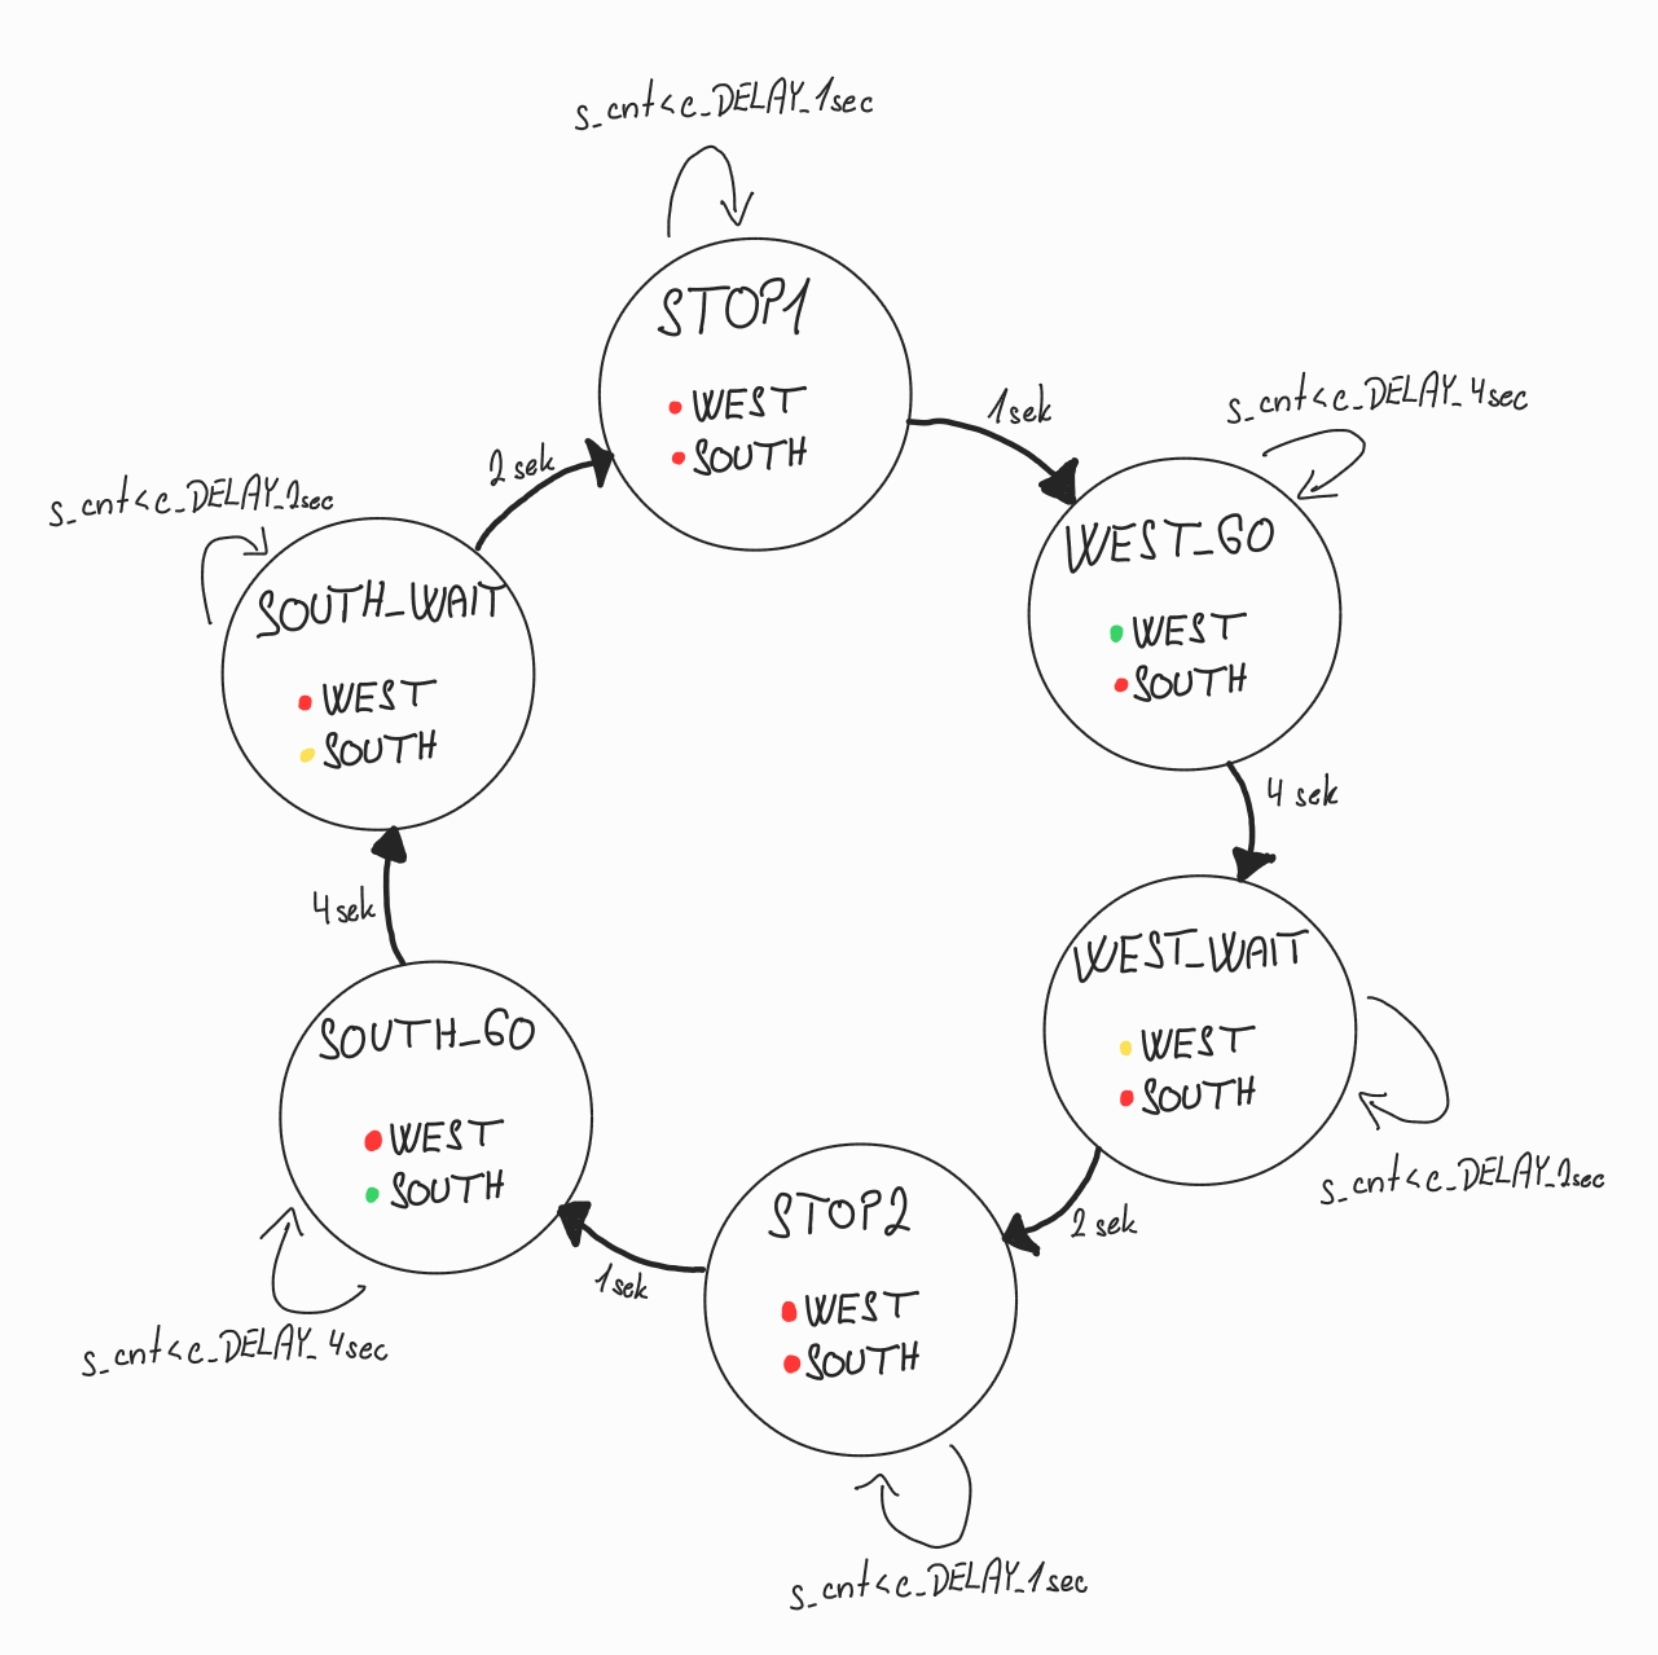 s_cnt<c_DELAY_1sec
STOP1
WEST
SOUTH
1sek
s_cnt<c_DELAY_4sec
WEST_GO
WEST
SOUTH
4 sek
WEST_WAIT
WEST
SOUTH
s_cnt<c_DELAY_2sec
2 sek
STOP2
WEST
SOUTH
s_cnt<c_DELAY_1sec
1sek
SOUTH_GO
WEST
SOUTH
s_cnt<c_DELAY_4sec
4sek
SOUTH_WAIT
WEST
SOUTH
s_cnt<c_DELAY_2sec
2 sek